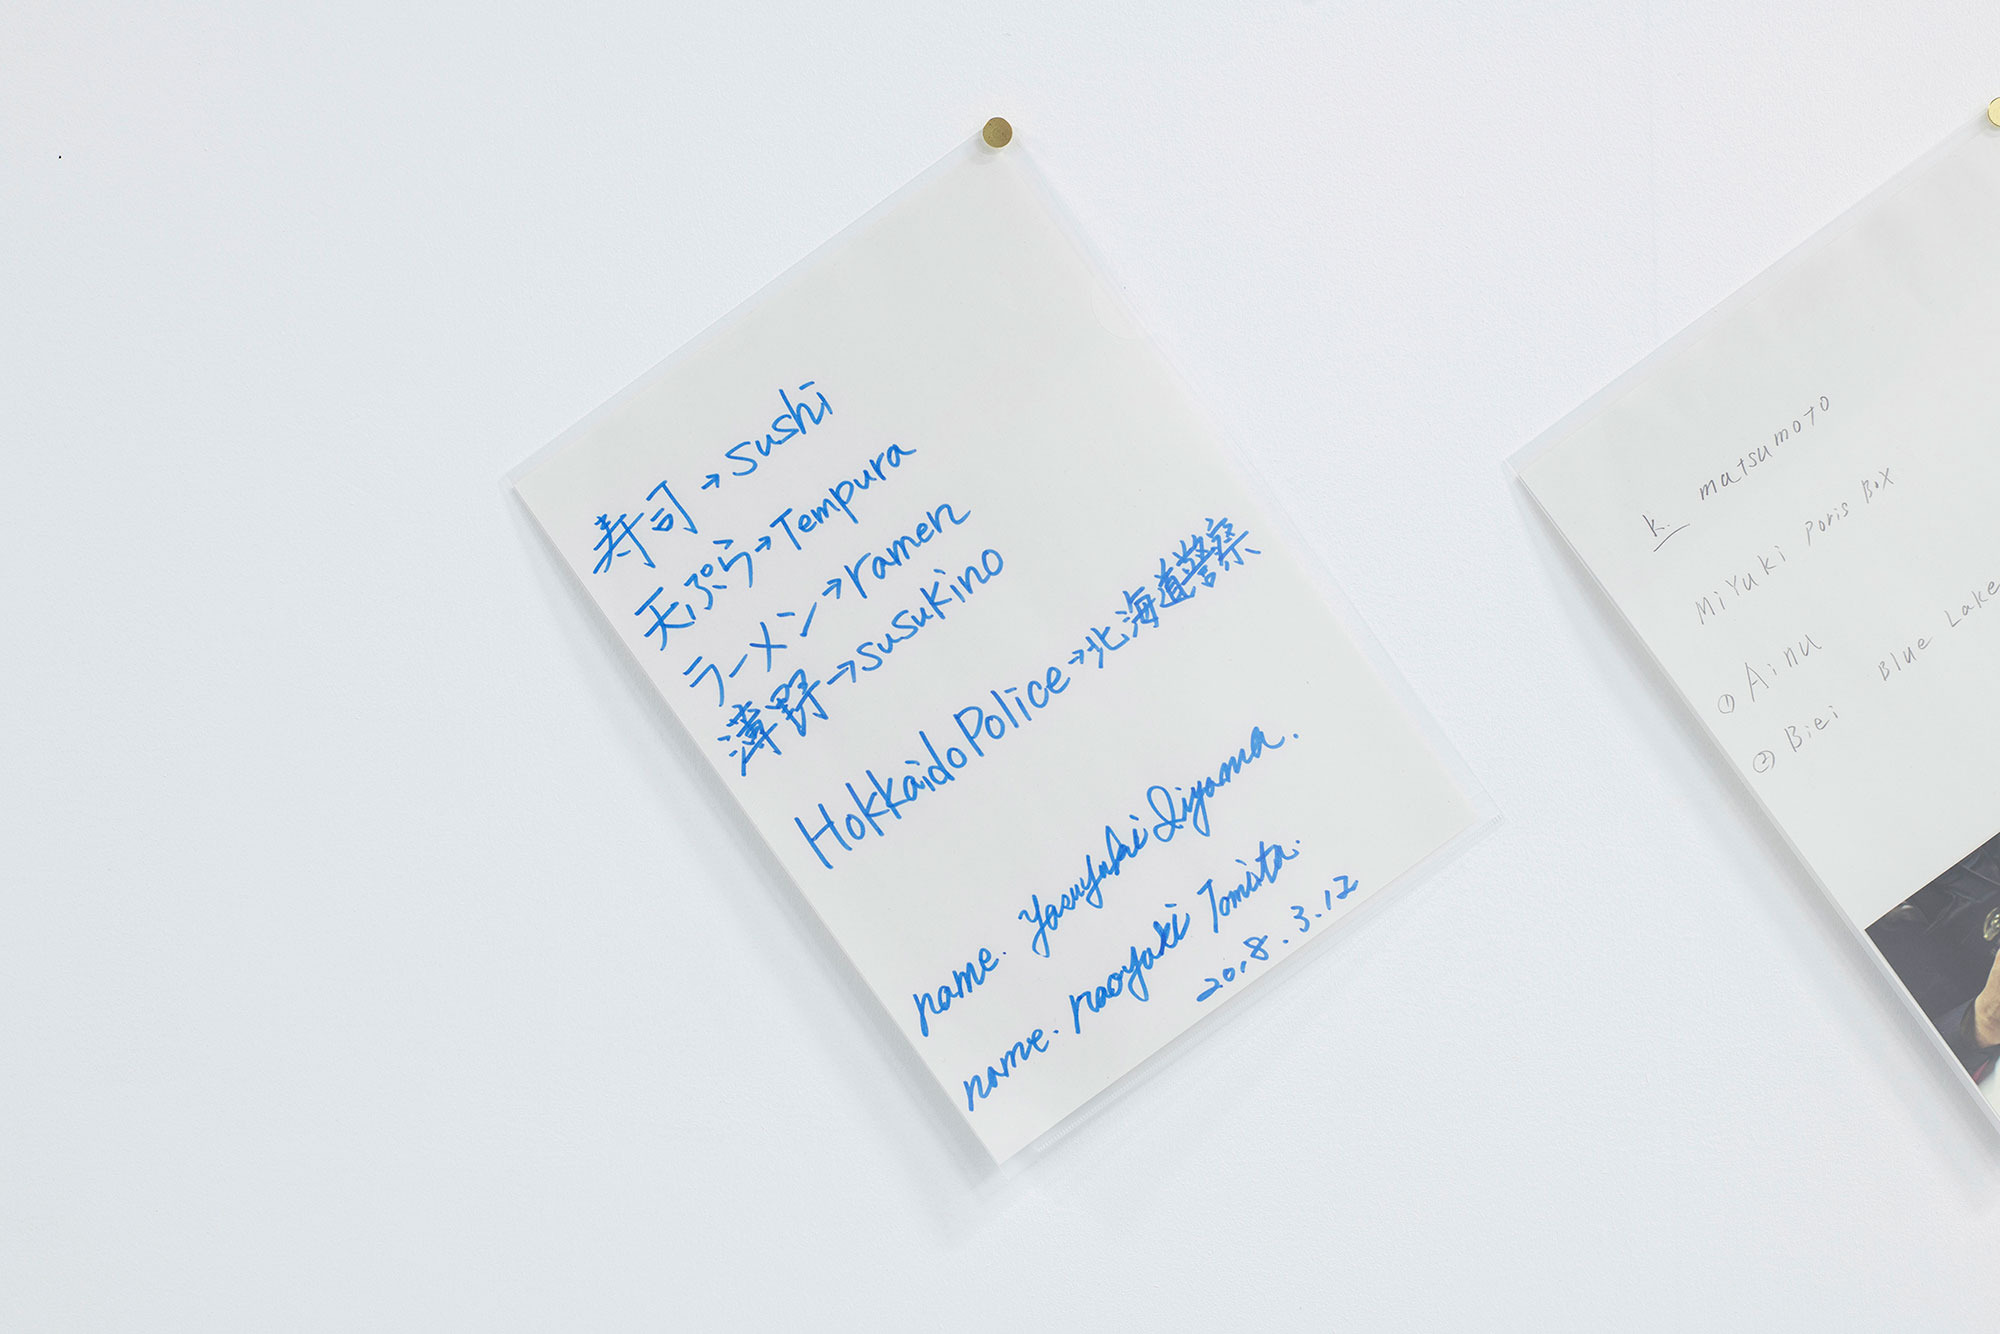 寿司→sushi
天ぷら→Tempura
ラーメン→ramen
薄野→susukino
Hokkaido Police→北海道警察
name. Yasuyuki Iiyama.
name. naoyuki Tomita.
20.8.3.12
K. matsumoto
MiYuki poris Box
① Ainu
② Biei Blue Lake